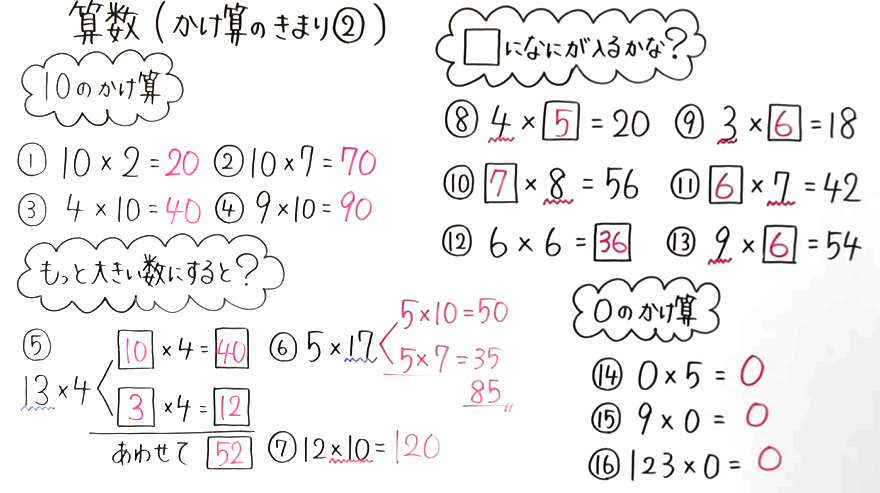 算数(かけ算のきまり②)
10のかけ算
① 10×2=20 ② 10×7=70
③ 4×10=40 ④ 9×10=90
もっと大きい数にすると?
⑤
13×4
10×4=40
3×4=12
あわせて 52
⑥ 5×17
5×10=50
5×7=35
85
⑦ 12×10=120
□になにが入るかな?
⑧ 4×5=20 ⑨ 3×6=18
⑩ 7×8=56 ⑪ 6×7=42
⑫ 6×6=36 ⑬ 9×6=54
0のかけ算
⑭ 0×5=0
⑮ 9×0=0
⑯ 123×0=0